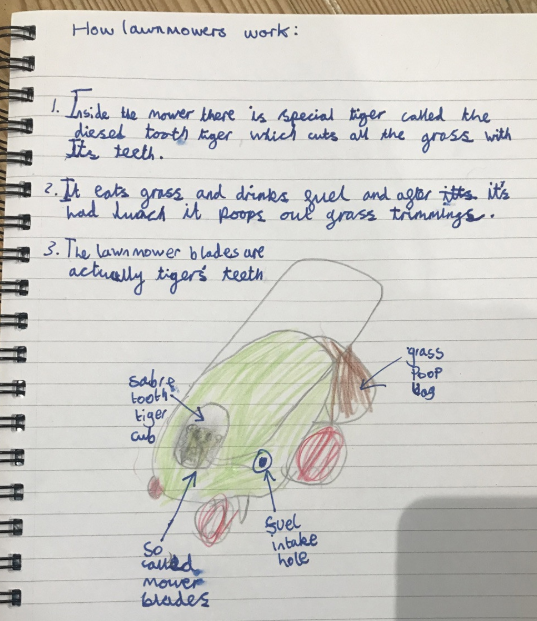 How lawnmowers work:
1. Inside the mower there is special tiger called the
diesel tooth tiger which cuts all the grass with
Its teeth.
2. It eats grass and drinks fuel and after it's
had lunch it poops out grass trimmings.
3. The lawnmower blades are
actually tigers' teeth
grass
poop
bag
sabre
tooth
tiger
cub
So
called
mower
blades
fuel
intake
hole